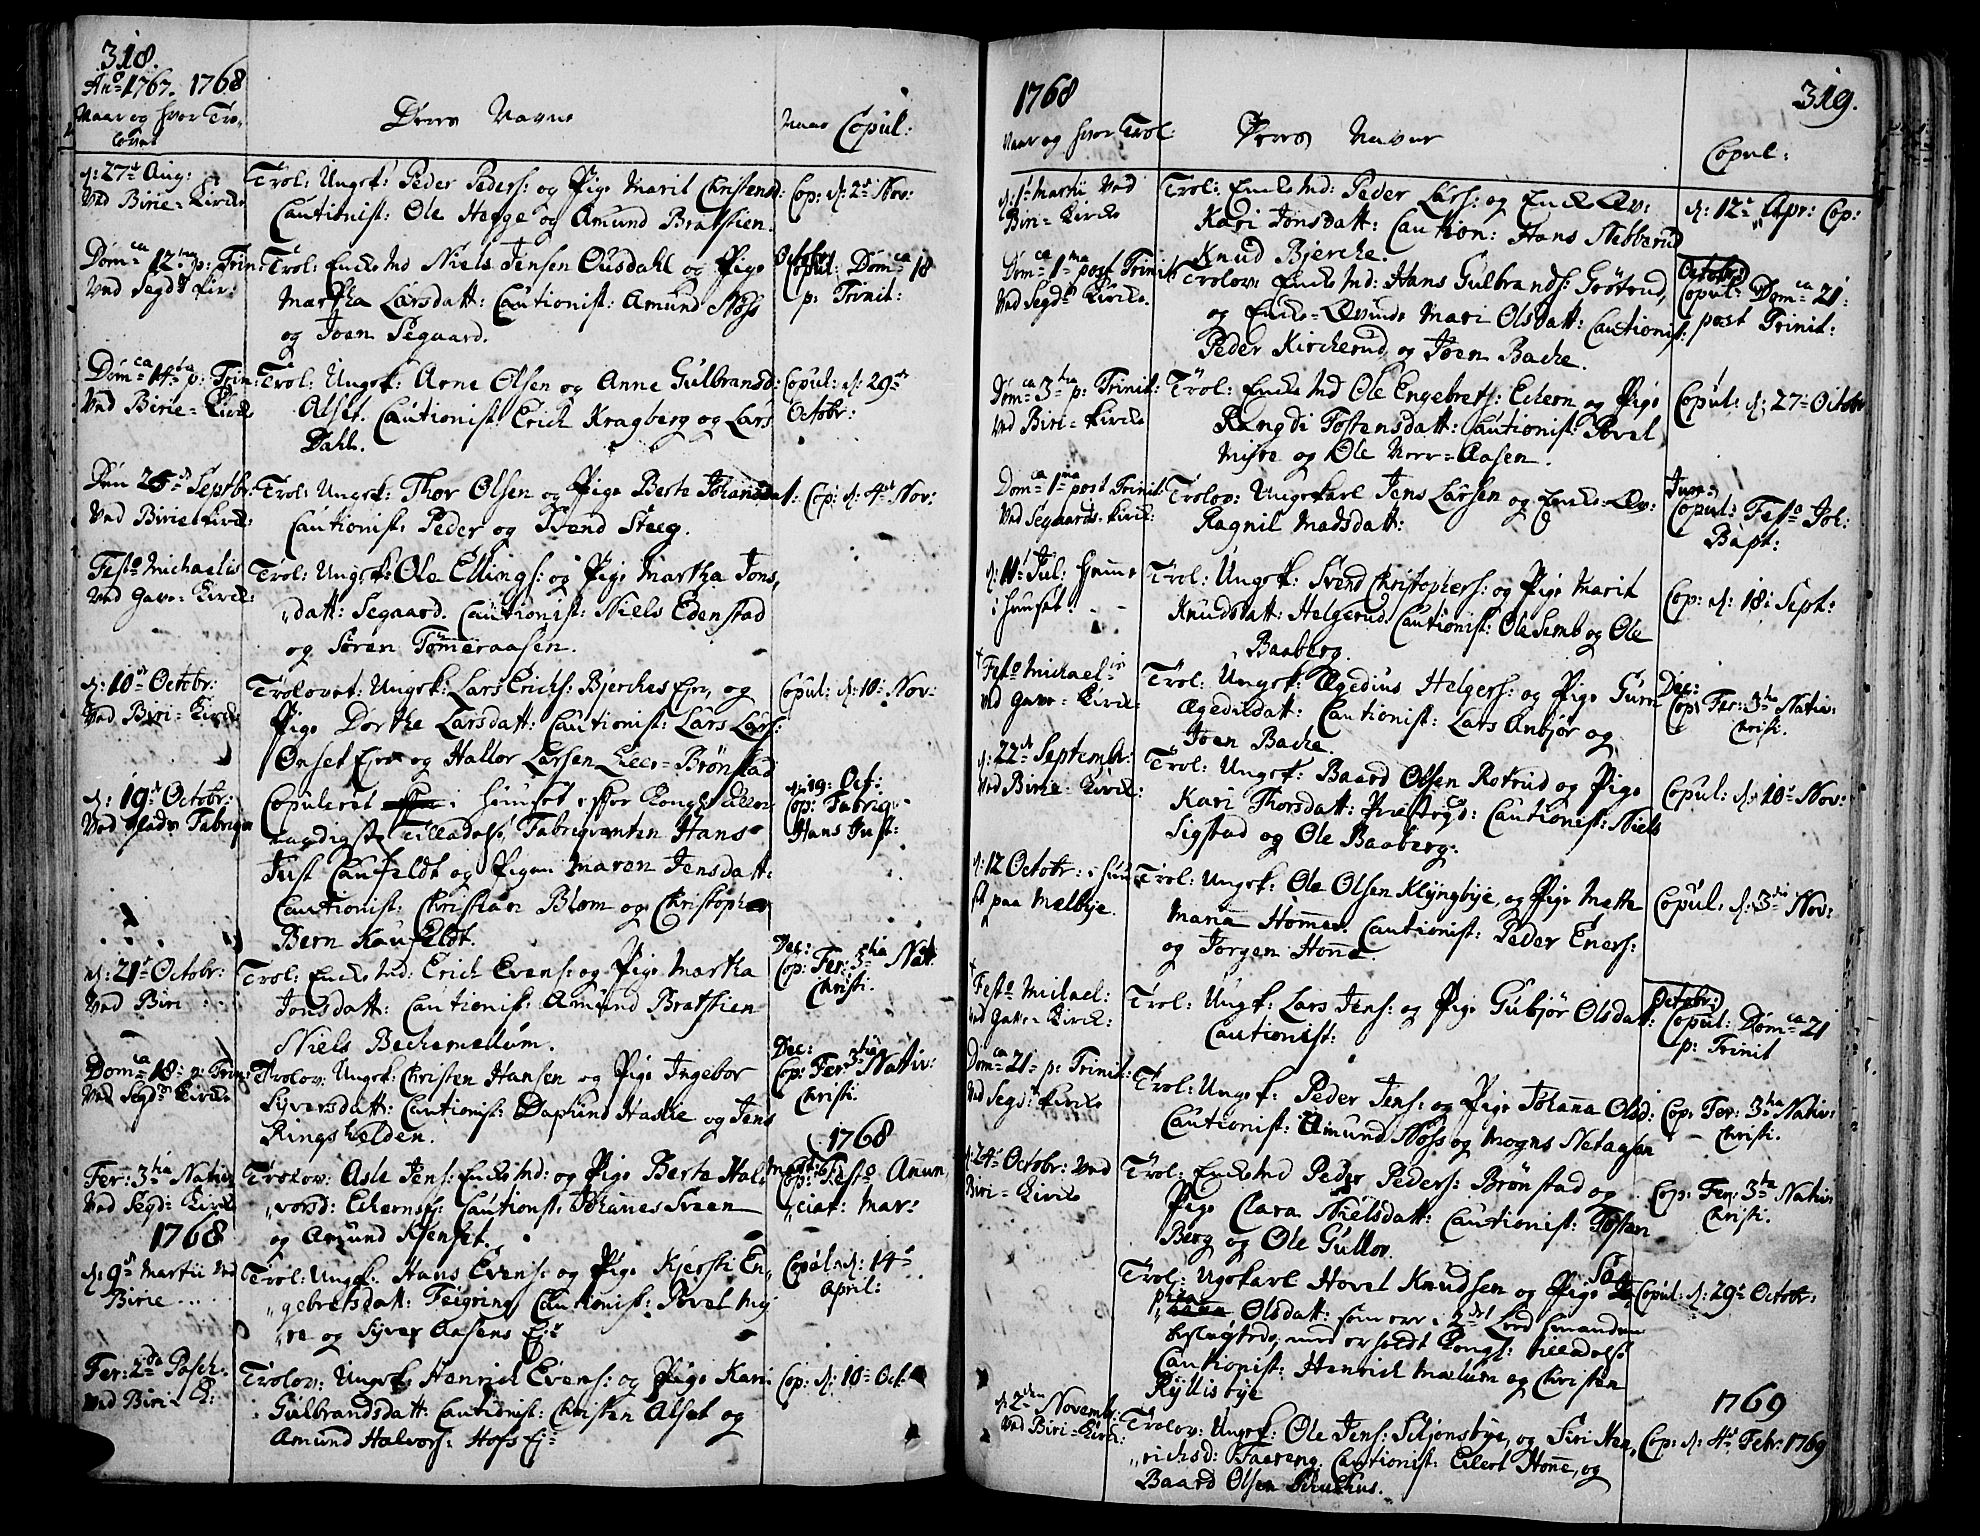 318.
An° 1767. 1768
Naar og hvor Tro,
lovet
Deres Navne
Naar Copul:
d: 27d Aug:
Ved Birie-Kircke
Trol: Ungk: Peder Peders: og Pige Marit Christensd:
Cautionist: Ole Hegge og Amund Bratstien.
Cop: d: 2d Nov:
Domca 12ma p: Trin:
Ved Segds Kir:
Trol: Encke Md Niels Jensen Ousdahl og Pige
Martha Larsdatt: Cautionist: Amund Noss
og Joen Segaard.
Octobr
Copul: Domca 18
p: Trinit:
Domca 14ta p: Trin:
Ved Birie-Kircke
Trol: Ungk: Arne Olsen og Anne Gulbransd:
Alset. Cautionist: Erich Kragberg og Lars
Dahl.
Copul: d: 29de
Octobr:
Den 25de Septbr:
Ved Birie Kirck:
Trol: Ungk: Thor Olsen og Pige Berte Johansdat
Cautionist: Peder og Svend Steeg.
Cop: d: 4d Nov:
Festo Michaelis
Ved Gave-Kirck:
Trol: Ungk: Ole Ellings: og Pige Martha Jons,
„datt: Segaard. Cautionist: Niels Edenstad
og Søren Tømmeraasen.
d: 10d Octobr:
Ved Biri-Kirck:
Trolovet: Ungk: Lars Erichs: Bjerches Ejer, og
Pige Dorthe Larsdatt: Cautionist: Lars Lars:
Onset Ejer og Hallor Larsen Lier-Brønstad
Copul: d: 10: Nov:
d: 19d Octobr:
Ved Glads Fabriqve
Copuleret i Huuset efter Kongel: aller
naadigste Tilladelse, Fabriqvanten Hans
Just Caufeldt og Pigen Maren Jensdatt:
Cautionist: Christian Blom og Christopher
Bern Kaufeldt.
d: 19: Oct:
Cop: Fabriq:
Hans Just:
d: 21d Octobr:
Ved Biri
Trol: Encke Md: Erich Evens: og Pige Martha
Jonsdatt: Cautionist: Amund Bratstien
Niels Beckemellum.
Dec:
Cop: Fer: 3tia Nat
Christi.
Domca 18: p: Trin:
Ved Segds Kircke
Trolov: Ungk: Christen Hansen og Pige Ingebor
Syversdatt: Cautionist: Dapfund Haske og Jens
Ringshelden.
Dec:
Cop: Fer 3tia Nativ:
Christi.
Fer: 3tia Nativ
Ved Segd: Kircke
Trolov: Asle Jens: Encke Md: og Pige Berte Hal,
„vorsd: Echernsej: Cautionist: Johanes Sveen
og Amund Ksenset.
1768
Cop: Festo Anun,
„ciat: Mar:
1768
d: 9d Martii Ved
Birie
Trol: Ungk: Hans Evens: og Pige Kjersti En,
„gebretsdatt: Feigring, Cautionist: Povel My,
„re og Syver Aasens Ej:
Copul: d: 14d
April:
Fer: 2da Pasch:
Ved Biri K:
Trolov: Ungk: Henrich Evens: og Pige Kari
Gulbrandsdatt: Cautionist: Christen Alset og
Amund Halvors: Hofs Ej:
Cop: d: 10: Oct:
1768
319.
Naar og hvor Trol:
Deres Navne
Copul:
d: 1d Martii Ved
Biri-Kircke
Trol: Encke Md: Peder Lars: og Encke Qv:
Kari Jonsdatt: Caution: Hans Nebberud
Knud Bjerche.
d: 12d Apr: Cop:
Domca 1ma post Trinit:
Ved Segds Kircke.
Trolov: Encke Md: Hans Gulbrands: Grøtrud,
og Encke-Qvinde Mari Olsdatt: Cautionist:
Peder Kircherud, og Joen Bache.
Octobr:
Copul: Domca 21:
post Trinit:
Domca 3tia p: Trinit:
Ved Biri-Kircke
Trol: Encke Md Ole Engebrets: Echern og Pige
Rangdi Tostensdatt: Cautionist: Povel
Myre og Ole Norr-Aasen.
Copul: d: 27d Octobr
Domca 1ma post Trinit
Ved Segaards Kirck:
Trolov: Ungkarl Jens Larsen og Encke-Qv:
Ragnil Madsdatt:
Jun:
Copul: Festo Joh:
Bapt:
d: 11d Jul: hjemme
i huuset.
Trol: Ungk: Svend Christophers: og Pige Marit
Knudsdatt: Helgerud, Cautionist: Ole Semb og Ole
Baaberg.
Cop: d: 18: Sept:
Festo Michael
Ved Gave-Kirck:
Trol: Ungk: Egedius Helgers: og Pige Guru
Egedildatt: Cautionist: Lars Anbjør og
Joen Bache.
Dec:
Cop: Fer: 3tia Nativ:
Christi.
d: 22de Septembr:
Ved Birie-Kirck:
Trol: Ungk: Baard Olsen Rotrud og Pige
Kari Thorsdatt: Præsteg: Cautionist: Niels
Sigstad og Ole Baaberg.
Copul: d: 10d Nov:
d: 12 Octobr: i huu
set paa Mælbye.
Trol: Ungk: Ole Olsen Klyngbye, og Pige Mette
Maria Hommer. Cautionist: Peder Eners:
og Jørgen Honne.
Copul: d: 3die Nov:
Festo Michael:
Ved Gave-Kirck:
Trol: Ungk: Lars Jens: og Pige Gubjør Olsdatt:
Cautionist:
Octobr:
Copul: Domca 21
p: Trinit
Domca 21 p: Trinit:
Ved Segds Kircke
Trol: Ungk: Peder Jens: og Pige Johana Olsd:
Cautionist: Amund Noss og Mogns Netagen
Cop: Fer: 3tia Nativ:
Christi.
d: 24d Octobr: Ved
Biri-Kircke
Trol: Encke Md Peder Peders: Brønstad og
Pige Clara Nielsdatt: Cautionist: Tosten
Berg og Ole Gullov.
Cop: Fer: 3tia Nativ
Christi.
Trol: Ungkarl Hovel Knudsen og Pige So
phia Olsdatt: som ere i 2det Leed hinanden
beslægtede, med erholdt Kongl: tilladelse
Cautionist: Henrich Mælum og Christen
Ryllisbye
Copul: d: 29d Octobr:
d: 2den Novembr:
Ved Biri-Kirck:
Trolov: Ungk: Ole Jens: Siljonsbye, og Siri Hen,
„richsd: Taareng. Cautionist: Eilert Honne, og
Baard Olsen Skulhus.
1769
Cop: d: 4d Febr: 1769